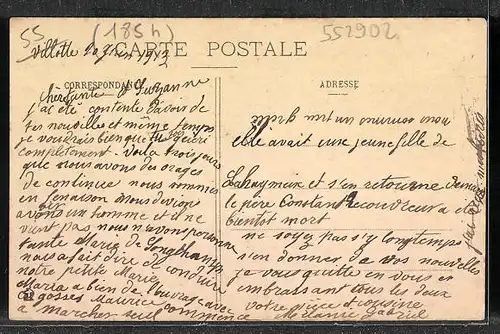 55 (185 h) 552902.
CARTE POSTALE
Villotte 1913
CORRESPONDANCE
ADRESSE
chère tante et Suzanne
j'ai été contente d'avoir de
tes nouvelles et même temps
je voudrais bien que tu sois guéri
complètement. Voilà trois jours
que nous avons des orages
de continue nous sommes
en fenaison nous devions
avoir un homme et il ne
vient pas nous n'avons personne
tante Marie de Longchamp
nous a fait dire de conduire
notre petite Marie
Maria a bien de l'ouvrage avec
ces gosses Maurice commence
a marcher seul
elle avait une jeune fille de
Lahaymeux et s'en retourne demain
le père Constant Recouvreur a
bientôt mort
ne soyez pas si longtemps
s'en donner de vos nouvelles
je vous quitte en vous en
embrassant tous les deux
votre nièce et cousine
Mélanie Gabriel